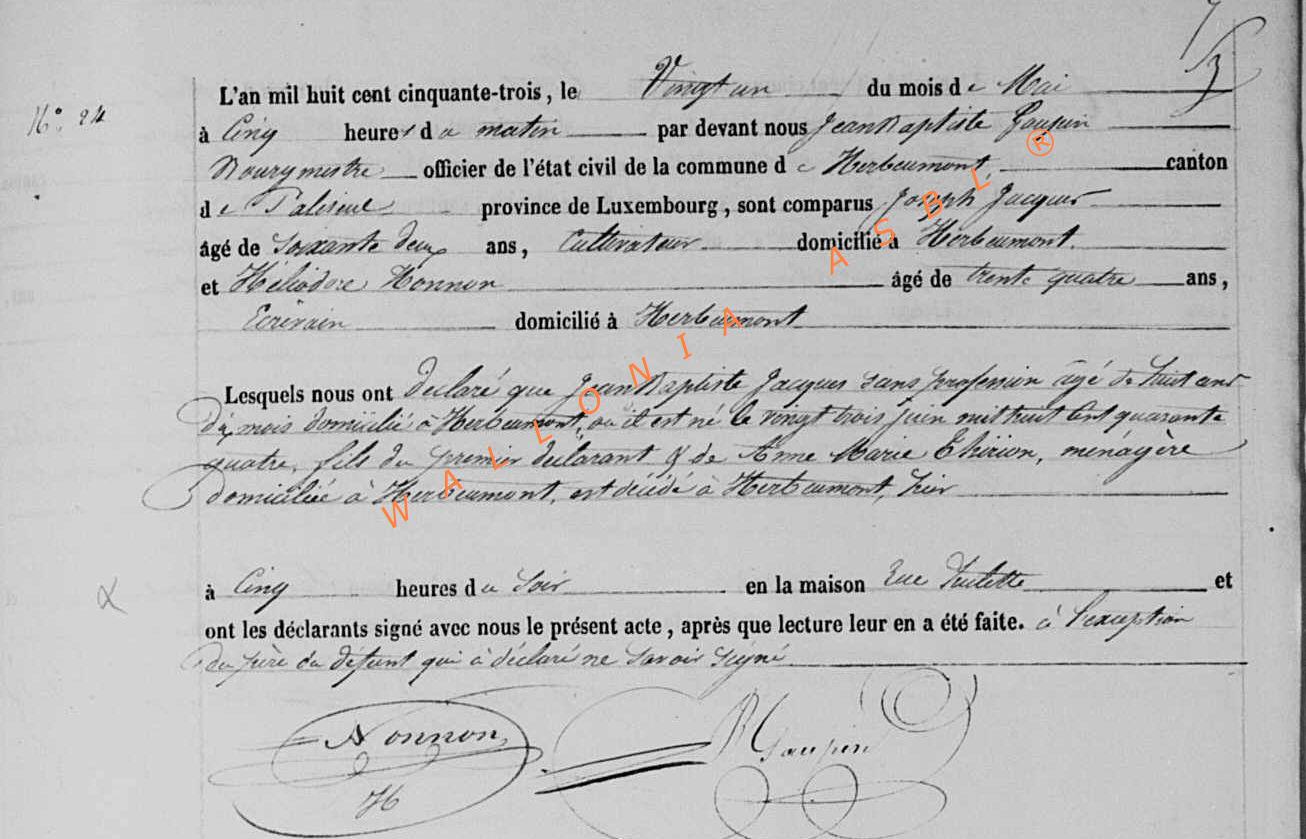 N.° 24
L'an mil huit cent cinquante-trois, le Vingt un du mois de Mai
à Cinq heures du matin par devant nous Jean Baptiste Gaupin
Bourgmestre officier de l'état civil de la commune de Herbeumont, canton
de Paliseul province de Luxembourg, sont comparus Joseph Jacques
âgé de Soixante deux ans, Cultivateur domicilié à Herbeumont
et Héliodore Nonnon âgé de trente quatre ans,
Ecrivain domicilié à Herbeumont
Lesquels nous ont déclaré que Jean Baptiste Jacques sans profession âgé de huit ans
dix mois domicilié à Herbeumont, où il est né le vingt trois juin mil huit cent quarante
quatre, fils du premier déclarant & de Anne Marie Thirion, ménagère
domiciliée à Herbeumont, est décédé à Herbeumont, hier
à Cinq heures du Soir en la maison rue et
ont les déclarants signé avec nous le présent acte, après que lecture leur en a été faite. à l'exception
du père du défunt qui à déclaré ne savoir signé
Nonnon
H
Gaupin
WALLONIA ASBL ®